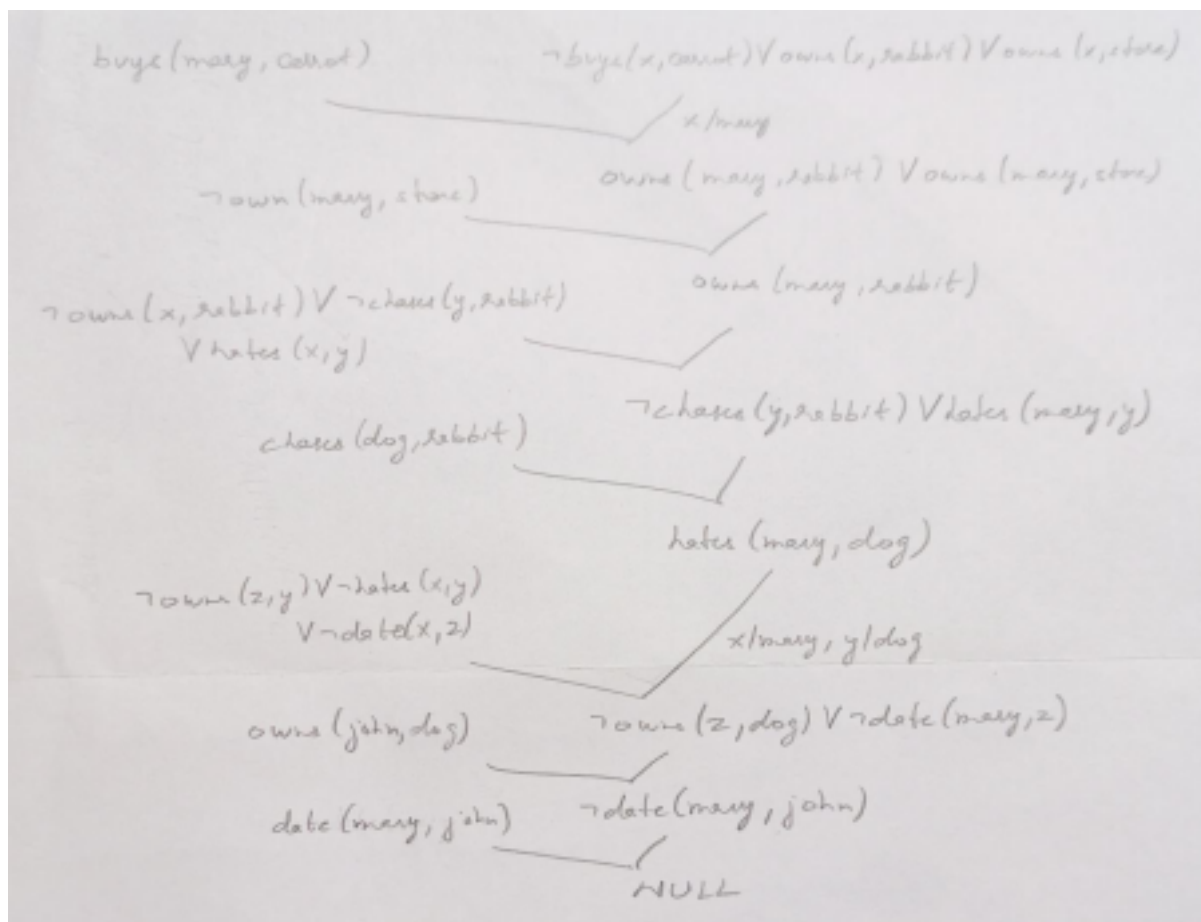 buys(mary, carrot) ¬buys(x, carrot) V owns(x, rabbit) V owns(x, store)
x/mary
¬own(mary, store) owns(mary, rabbit) V owns(mary, store)
owns(mary, rabbit)
¬owns(x, rabbit) V ¬chases(y, rabbit)
V hates(x, y)
¬chases(y, rabbit) V hates(mary, y)
chases(dog, rabbit)
hates(mary, dog)
¬owns(z, y) V ¬hates(x, y)
V ¬date(x, z)
x/mary, y/dog
owns(john, dog) ¬owns(z, dog) V ¬date(mary, z)
date(mary, john) ¬date(mary, john)
NULL